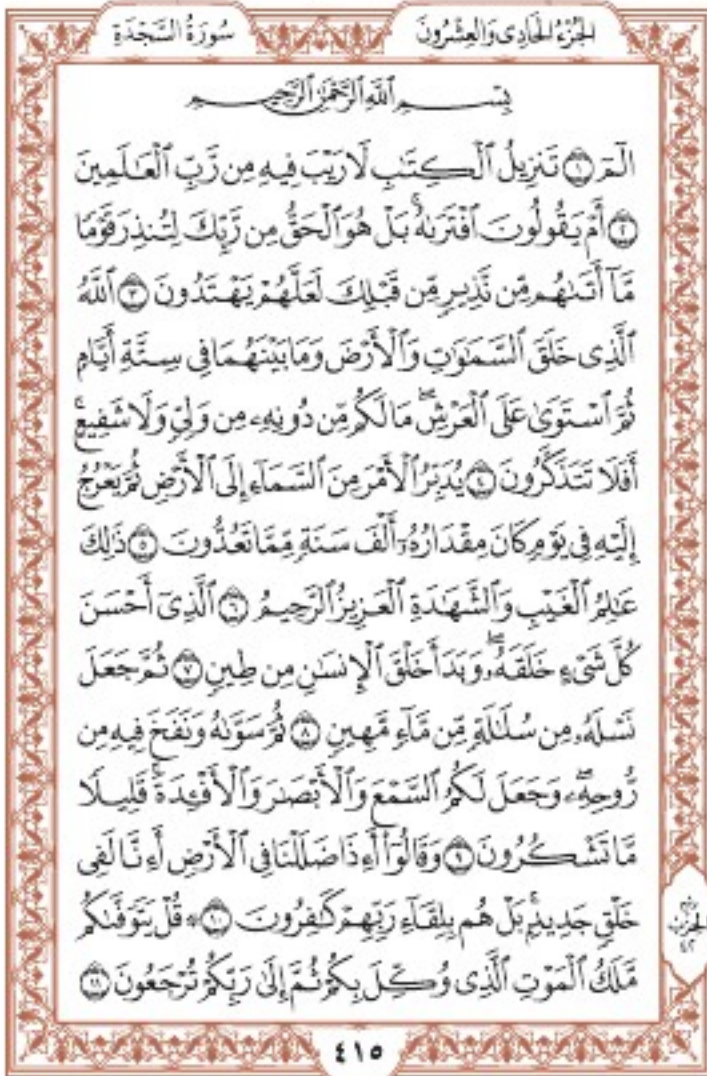 الجُزْءُ الحَادِي وَالعِشْرُونَ
سُورَةُ السَّجْدَةِ
بِسْمِ ٱللَّهِ ٱلرَّحْمَٰنِ ٱلرَّحِيمِ
الٓمٓ ١ تَنزِيلُ ٱلْكِتَٰبِ لَا رَيْبَ فِيهِ مِن رَّبِّ ٱلْعَٰلَمِينَ
٢ أَمْ يَقُولُونَ ٱفْتَرَىٰهُۚ بَلْ هُوَ ٱلْحَقُّ مِن رَّبِّكَ لِتُنذِرَ قَوْمًا
مَّآ أَتَىٰهُم مِّن نَّذِيرٍ مِّن قَبْلِكَ لَعَلَّهُمْ يَهْتَدُونَ ٣ ٱللَّهُ
ٱلَّذِى خَلَقَ ٱلسَّمَٰوَٰتِ وَٱلْأَرْضَ وَمَا بَيْنَهُمَا فِى سِتَّةِ أَيَّامٍ
ثُمَّ ٱسْتَوَىٰ عَلَى ٱلْعَرْشِۖ مَا لَكُم مِّن دُونِهِۦ مِن وَلِىٍّ وَلَا شَفِيعٍۚ
أَفَلَا تَتَذَكَّرُونَ ٤ يُدَبِّرُ ٱلْأَمْرَ مِنَ ٱلسَّمَآءِ إِلَى ٱلْأَرْضِ ثُمَّ يَعْرُجُ
إِلَيْهِ فِى يَوْمٍ كَانَ مِقْدَارُهُۥٓ أَلْفَ سَنَةٍ مِّمَّا تَعُدُّونَ ٥ ذَٰلِكَ
عَٰلِمُ ٱلْغَيْبِ وَٱلشَّهَٰدَةِ ٱلْعَزِيزُ ٱلرَّحِيمُ ٦ ٱلَّذِىٓ أَحْسَنَ
كُلَّ شَىْءٍ خَلَقَهُۥۖ وَبَدَأَ خَلْقَ ٱلْإِنسَٰنِ مِن طِينٍ ٧ ثُمَّ جَعَلَ
نَسْلَهُۥ مِن سُلَٰلَةٍ مِّن مَّآءٍ مَّهِينٍ ٨ ثُمَّ سَوَّىٰهُ وَنَفَخَ فِيهِ مِن
رُّوحِهِۦۖ وَجَعَلَ لَكُمُ ٱلسَّمْعَ وَٱلْأَبْصَٰرَ وَٱلْأَفْـِٔدَةَۚ قَلِيلًا
مَّا تَشْكُرُونَ ٩ وَقَالُوٓا۟ أَءِذَا ضَلَلْنَا فِى ٱلْأَرْضِ أَءِنَّا لَفِى
خَلْقٍ جَدِيدٍۭۚ بَلْ هُم بِلِقَآءِ رَبِّهِمْ كَٰفِرُونَ ١٠ ۞ قُلْ يَتَوَفَّىٰكُم
مَّلَكُ ٱلْمَوْتِ ٱلَّذِى وُكِّلَ بِكُمْ ثُمَّ إِلَىٰ رَبِّكُمْ تُرْجَعُونَ ١١
٤١٥